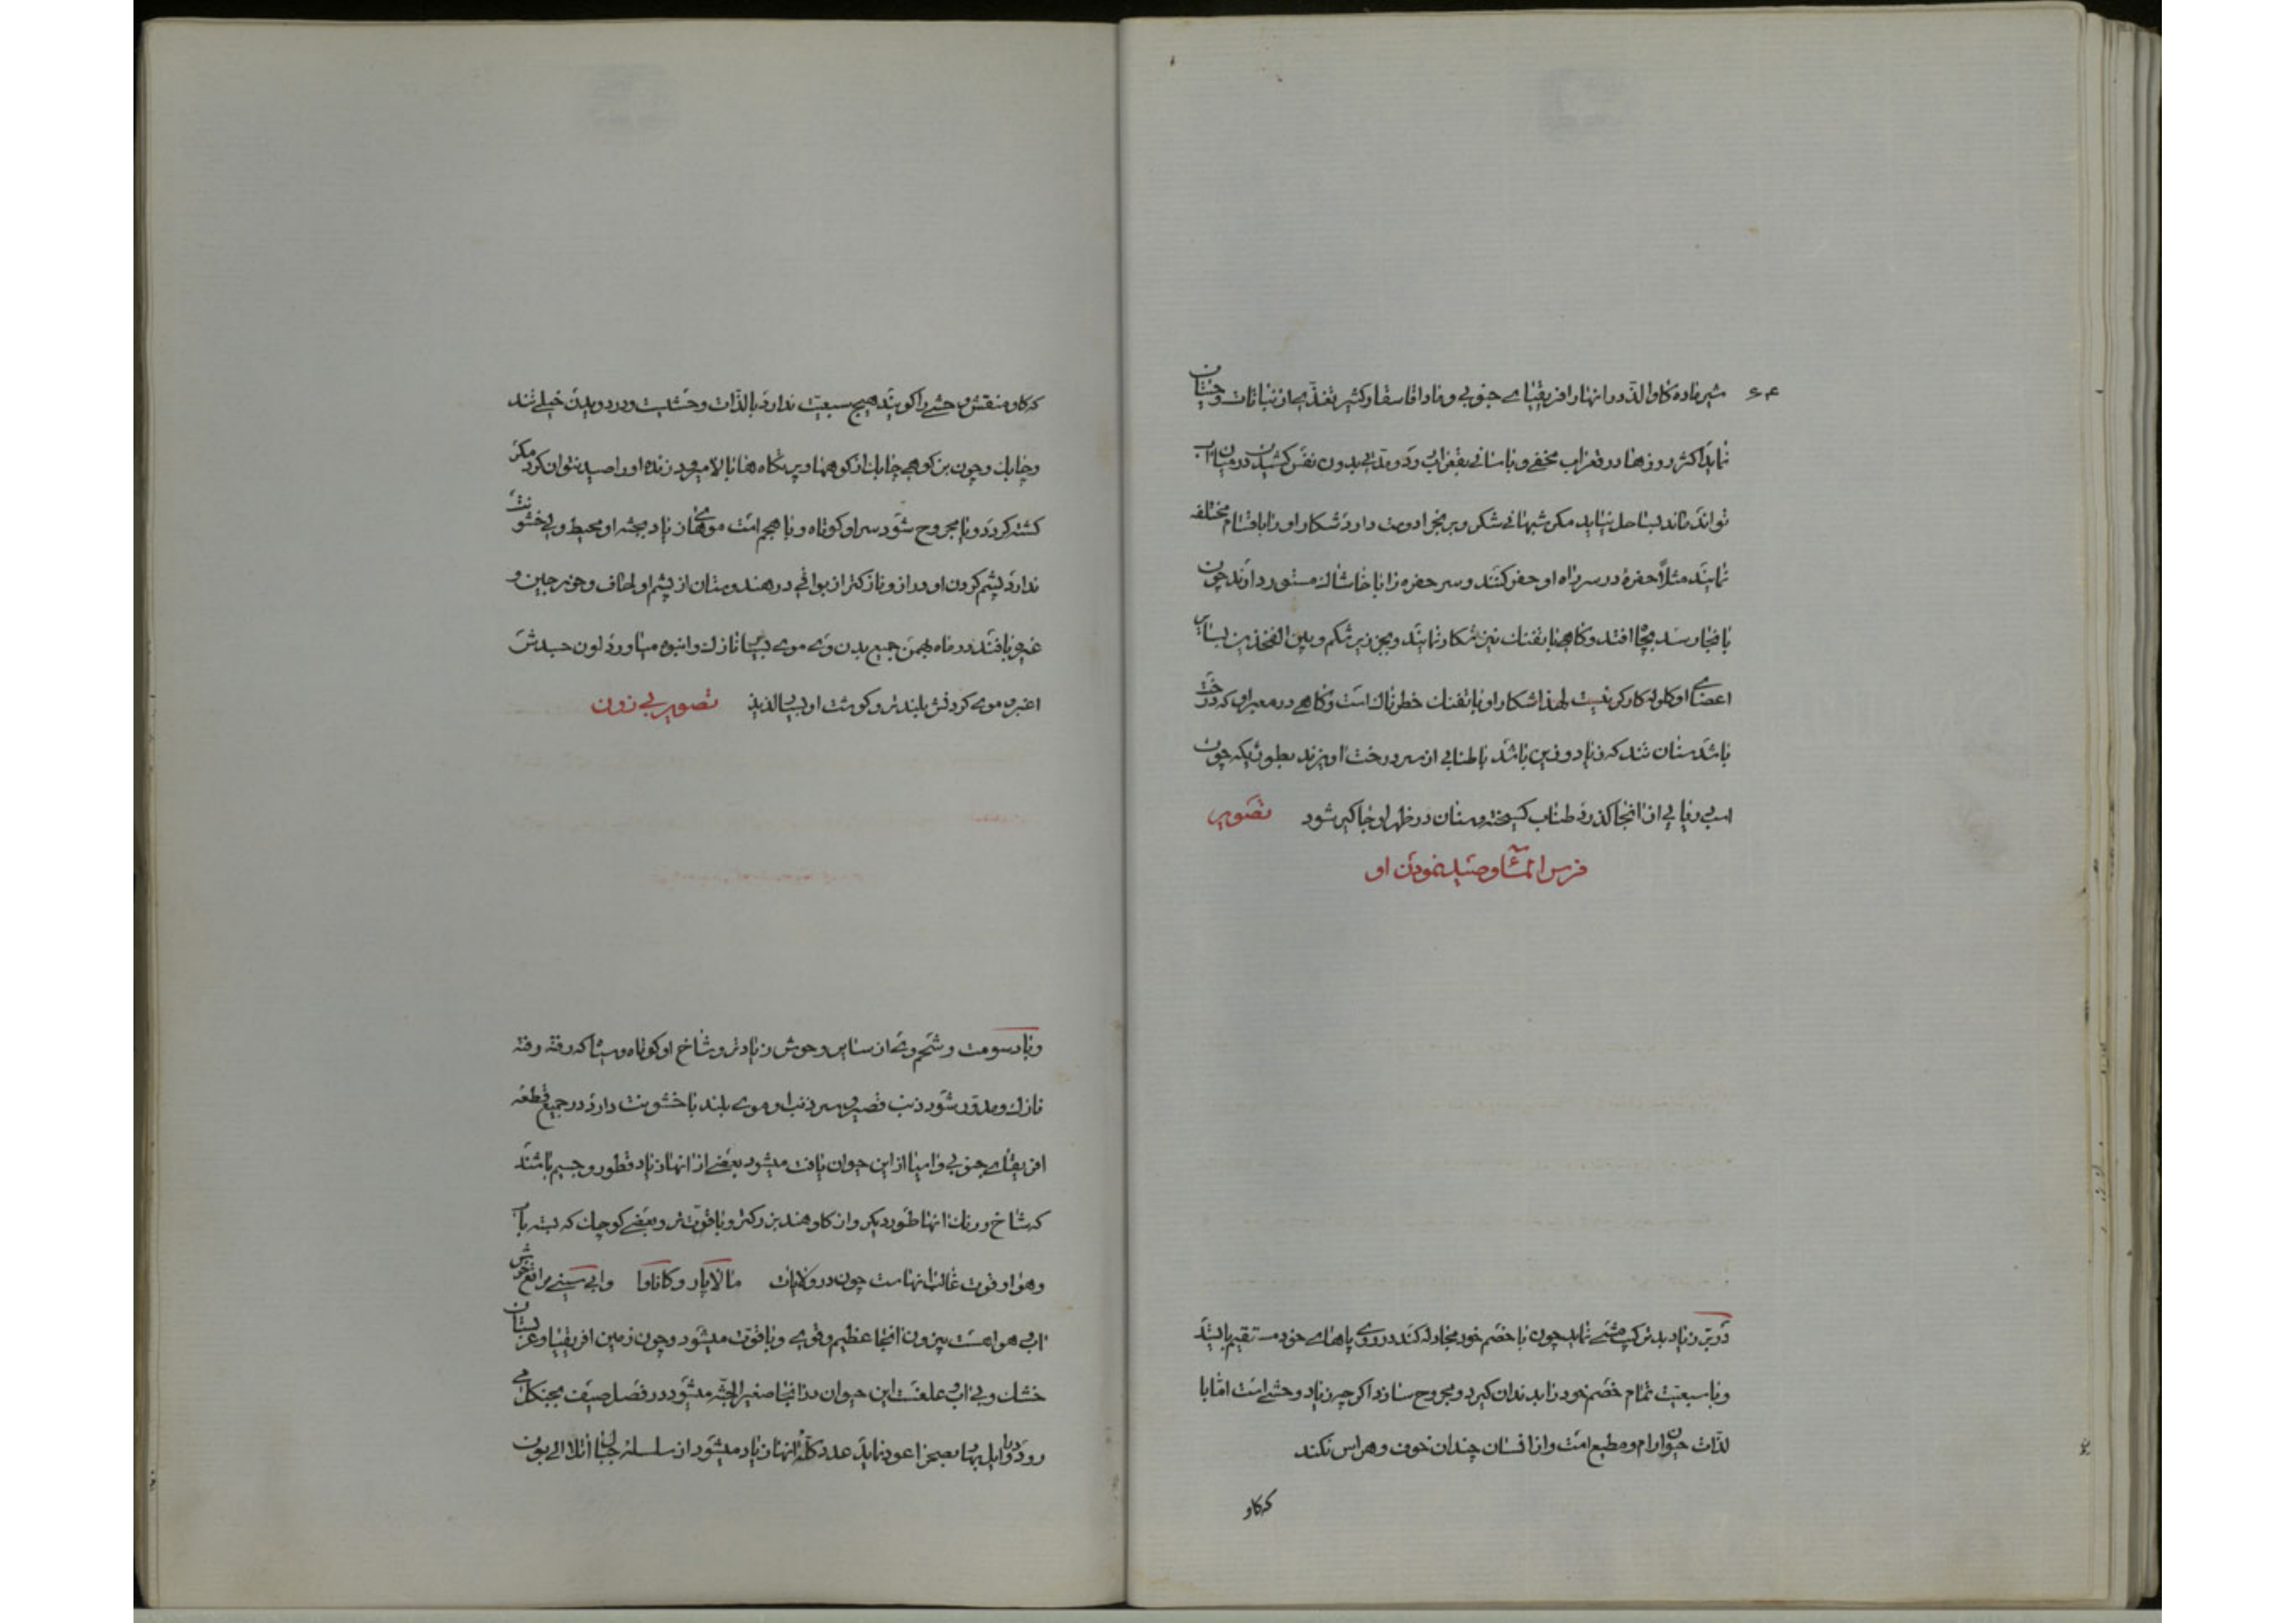 شیر ماده کاو الذ در انهار افریقیای جنوبی و ماداقاسقار کثیر تغذیه از نباتات وحشیان
نماید اکثر روزها در قعر اب مخفی و باسانی بقعر اب رود و مدتی بدون نفس کشیدن در میان اب
تواند ماند بساحل نیاید مکر شبها نی شکر و برنج را دوست دارد شکار او را باقسام مختلفه
نمایند مثلاً حفرهٔ در سر راه او حفر کنند و سر حفره را با خاشاک مستور دارند چون
بانجا رسد بچاه افتد و کاهی با تفنک نیز شکار نمایند و بجز زیر شکم و بین الفخذین بسایر
اعضای او کلوله کارکر نیست لهذا شکار او با تفنک خطرناک است و کاهی در معبر او که درخت
باشد سنان تند که زیاد وزین باشد با طنابی از سر درخت اویزند بطوریکه چون
اسب دریایی از انجا کذرد طناب کسیخته و سنان در ظهر او جاکیر شود تصویر
فرس الماء و صید نمودن او
زیاد بد ترکیب مشی نماید چون با خصم خود مجادله کند در روی پاهای خود مستقیم بایستد
و با سبعیت تمام خصم خود را بدندان کیرد و مجروح سازد اکرچه زیاد وحشی است اما با
لذات حیوان ارام و مطیع است و از انسان چندان خوف و هراس نکند
که کاو
که کاو منقش وحشی را کویند هیچ سبعیت ندارد بالذات وحشیست و در دویدن خیلی تند
و چابک و چون بز کوهی چابک از کوهها و پرتکاه ها بالا میرود زنده او را صید نتوان کرد مکر
کشته کردد و یا مجروح شود سر او کوتاه و با هجم است موهای از زیاد بجثه او محیط و بی خشونت
ندارد پشم کردن او دراز و نازکتر از بواقی در هندوستان از پشم او لحاف و خورجین و
غیره بافند در ماه بهمن جمیع بدن وی موی بسیار نازک و انبوه میاورد لون جسدش
اغبر و موی کردنش بلندتر و کوشت او بسیار لذیذ تصویر بی زون
و زیاد سومت و شحم وی از سایر وحوش زیادتر و شاخ او کوتاه و سیاه که رفته رفته
نازک و مدور شود ذنب قصیر و سر ذنب او موی بلند با خشونت دارد در جمیع قطعه
افریقای جنوبی و اسیا از این حیوان یافت میشود بعضی از انها زیاد قطور و جسیم باشند
که شاخ و رنک انها طور دیکر و از کاو هند بزرکتر و با قوت تر و بعضی کوچک که بسته باب
و هوا و قوت غالب انهاست چون در ولایات مالابار و کاناوا و ابی سینی مراتع خوش
اب هوا هست بیزون انجا عظیم و قوی و با قوت میشود و چون زمین افریقیا و عربستان
خشک و بی اب علفست این حیوان در انجا صغیر الجثه میشود در فصل صیف بجنکل می
رود و اوایل بهار بصحرا عود نماید عدد کله انها زیاد میشود از سلسله جبال اتلا الی بون